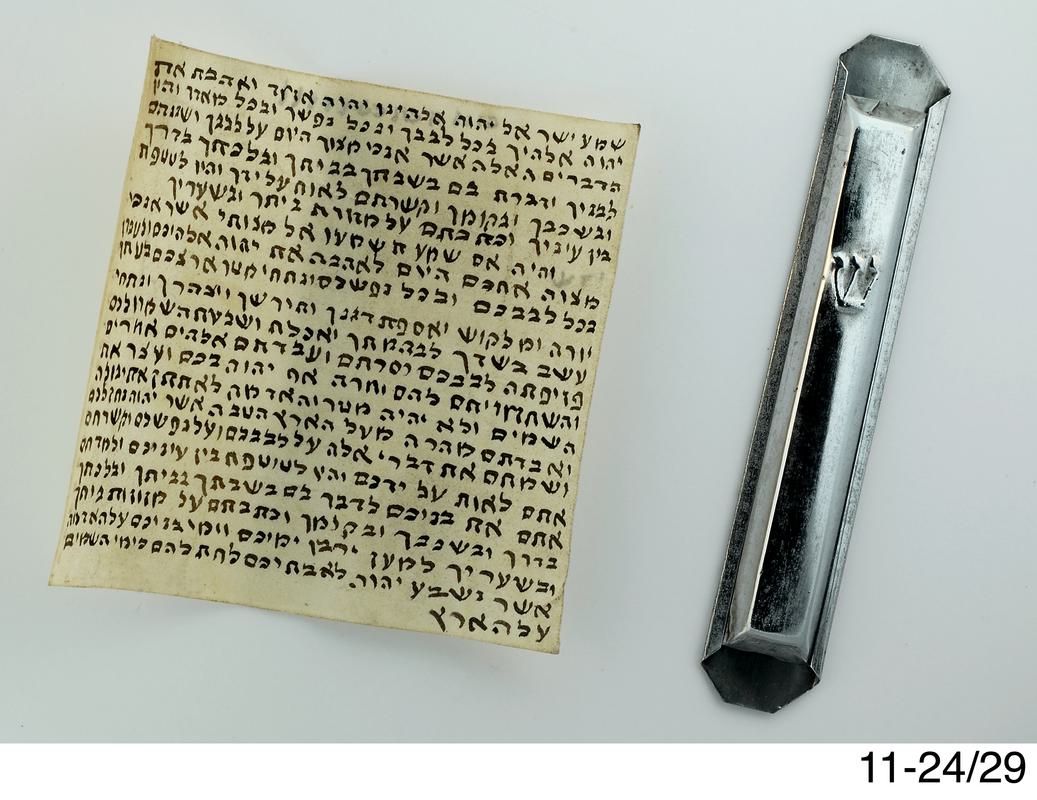 שמע ישראל יהוה אלהינו יהוה אחד ואהבת את
יהוה אלהיך בכל לבבך ובכל נפשך ובכל מאדך והיו
הדברים האלה אשר אנכי מצוך היום על לבבך ושננתם
לבניך ודברת בם בשבתך בביתך ובלכתך בדרך
ובשכבך ובקומך וקשרתם לאות על ידך והיו לטטפת
בין עיניך וכתבתם על מזוזת ביתך ובשעריך
והיה אם שמע תשמעו אל מצותי אשר אנכי
מצוה אתכם היום לאהבה את יהוה אלהיכם ולעבדו
בכל לבבכם ובכל נפשכם ונתתי מטר ארצכם בעתו
יורה ומלקוש ואספת דגנך ותירשך ויצהרך ונתתי
עשב בשדך לבהמתך ואכלת ושבעת השמרו לכם
פן יפתה לבבכם וסרתם ועבדתם אלהים אחרים
והשתחויתם להם וחרה אף יהוה בכם ועצר את
השמים ולא יהיה מטר והאדמה לא תתן את יבולה
ואבדתם מהרה מעל הארץ הטבה אשר יהוה נתן לכם
ושמתם את דברי אלה על לבבכם ועל נפשכם וקשרתם
אתם לאות על ידכם והיו לטוטפת בין עיניכם ולמדתם
אתם את בניכם לדבר בם בשבתך בביתך ובלכתך
בדרך ובשכבך ובקומך וכתבתם על מזוזות ביתך
ובשעריך למען ירבו ימיכם וימי בניכם על האדמה
אשר נשבע יהוה לאבתיכם לתת להם כימי השמים
על הארץ
ש
11-24/29